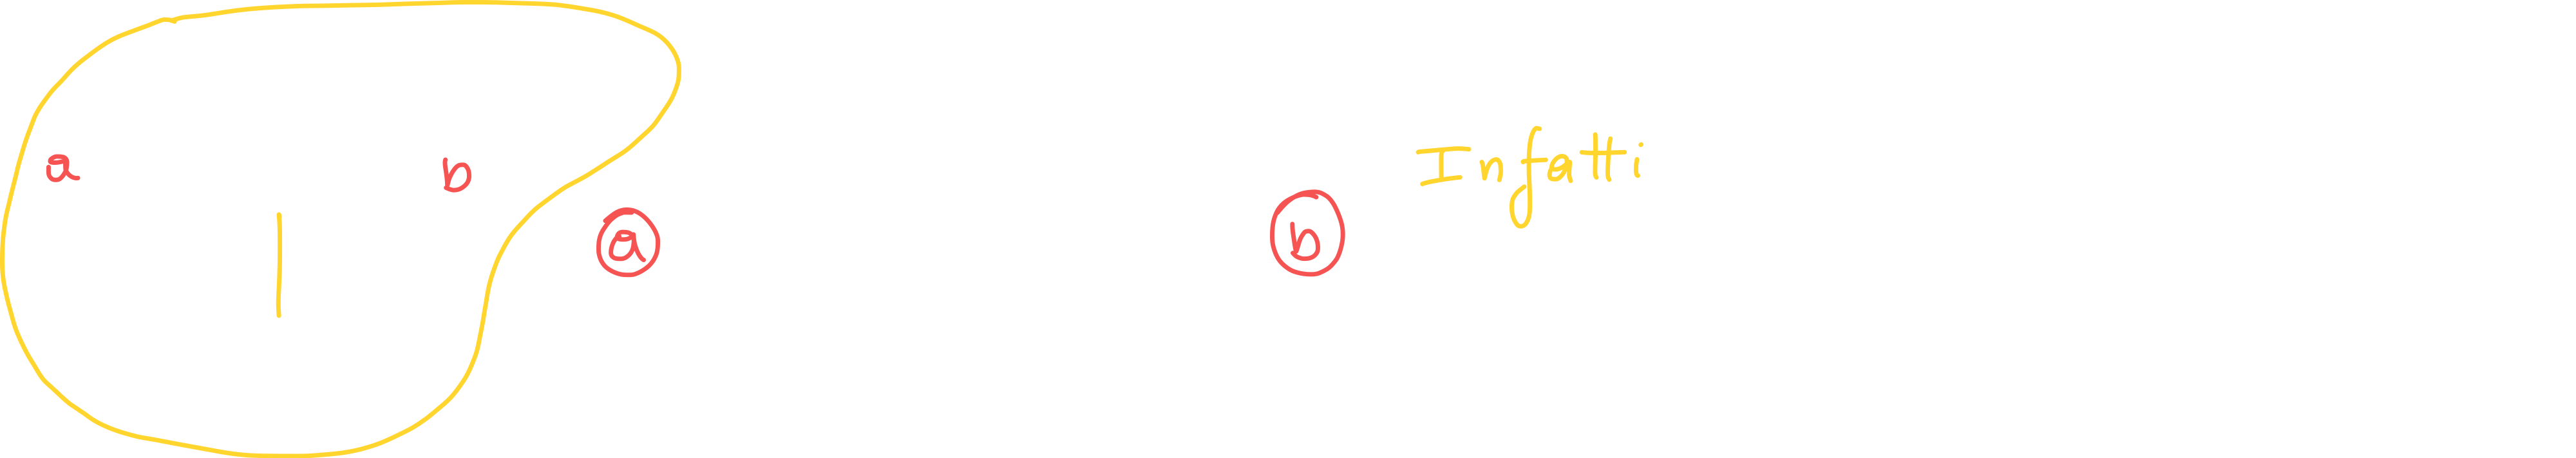 a b
a b Infatti